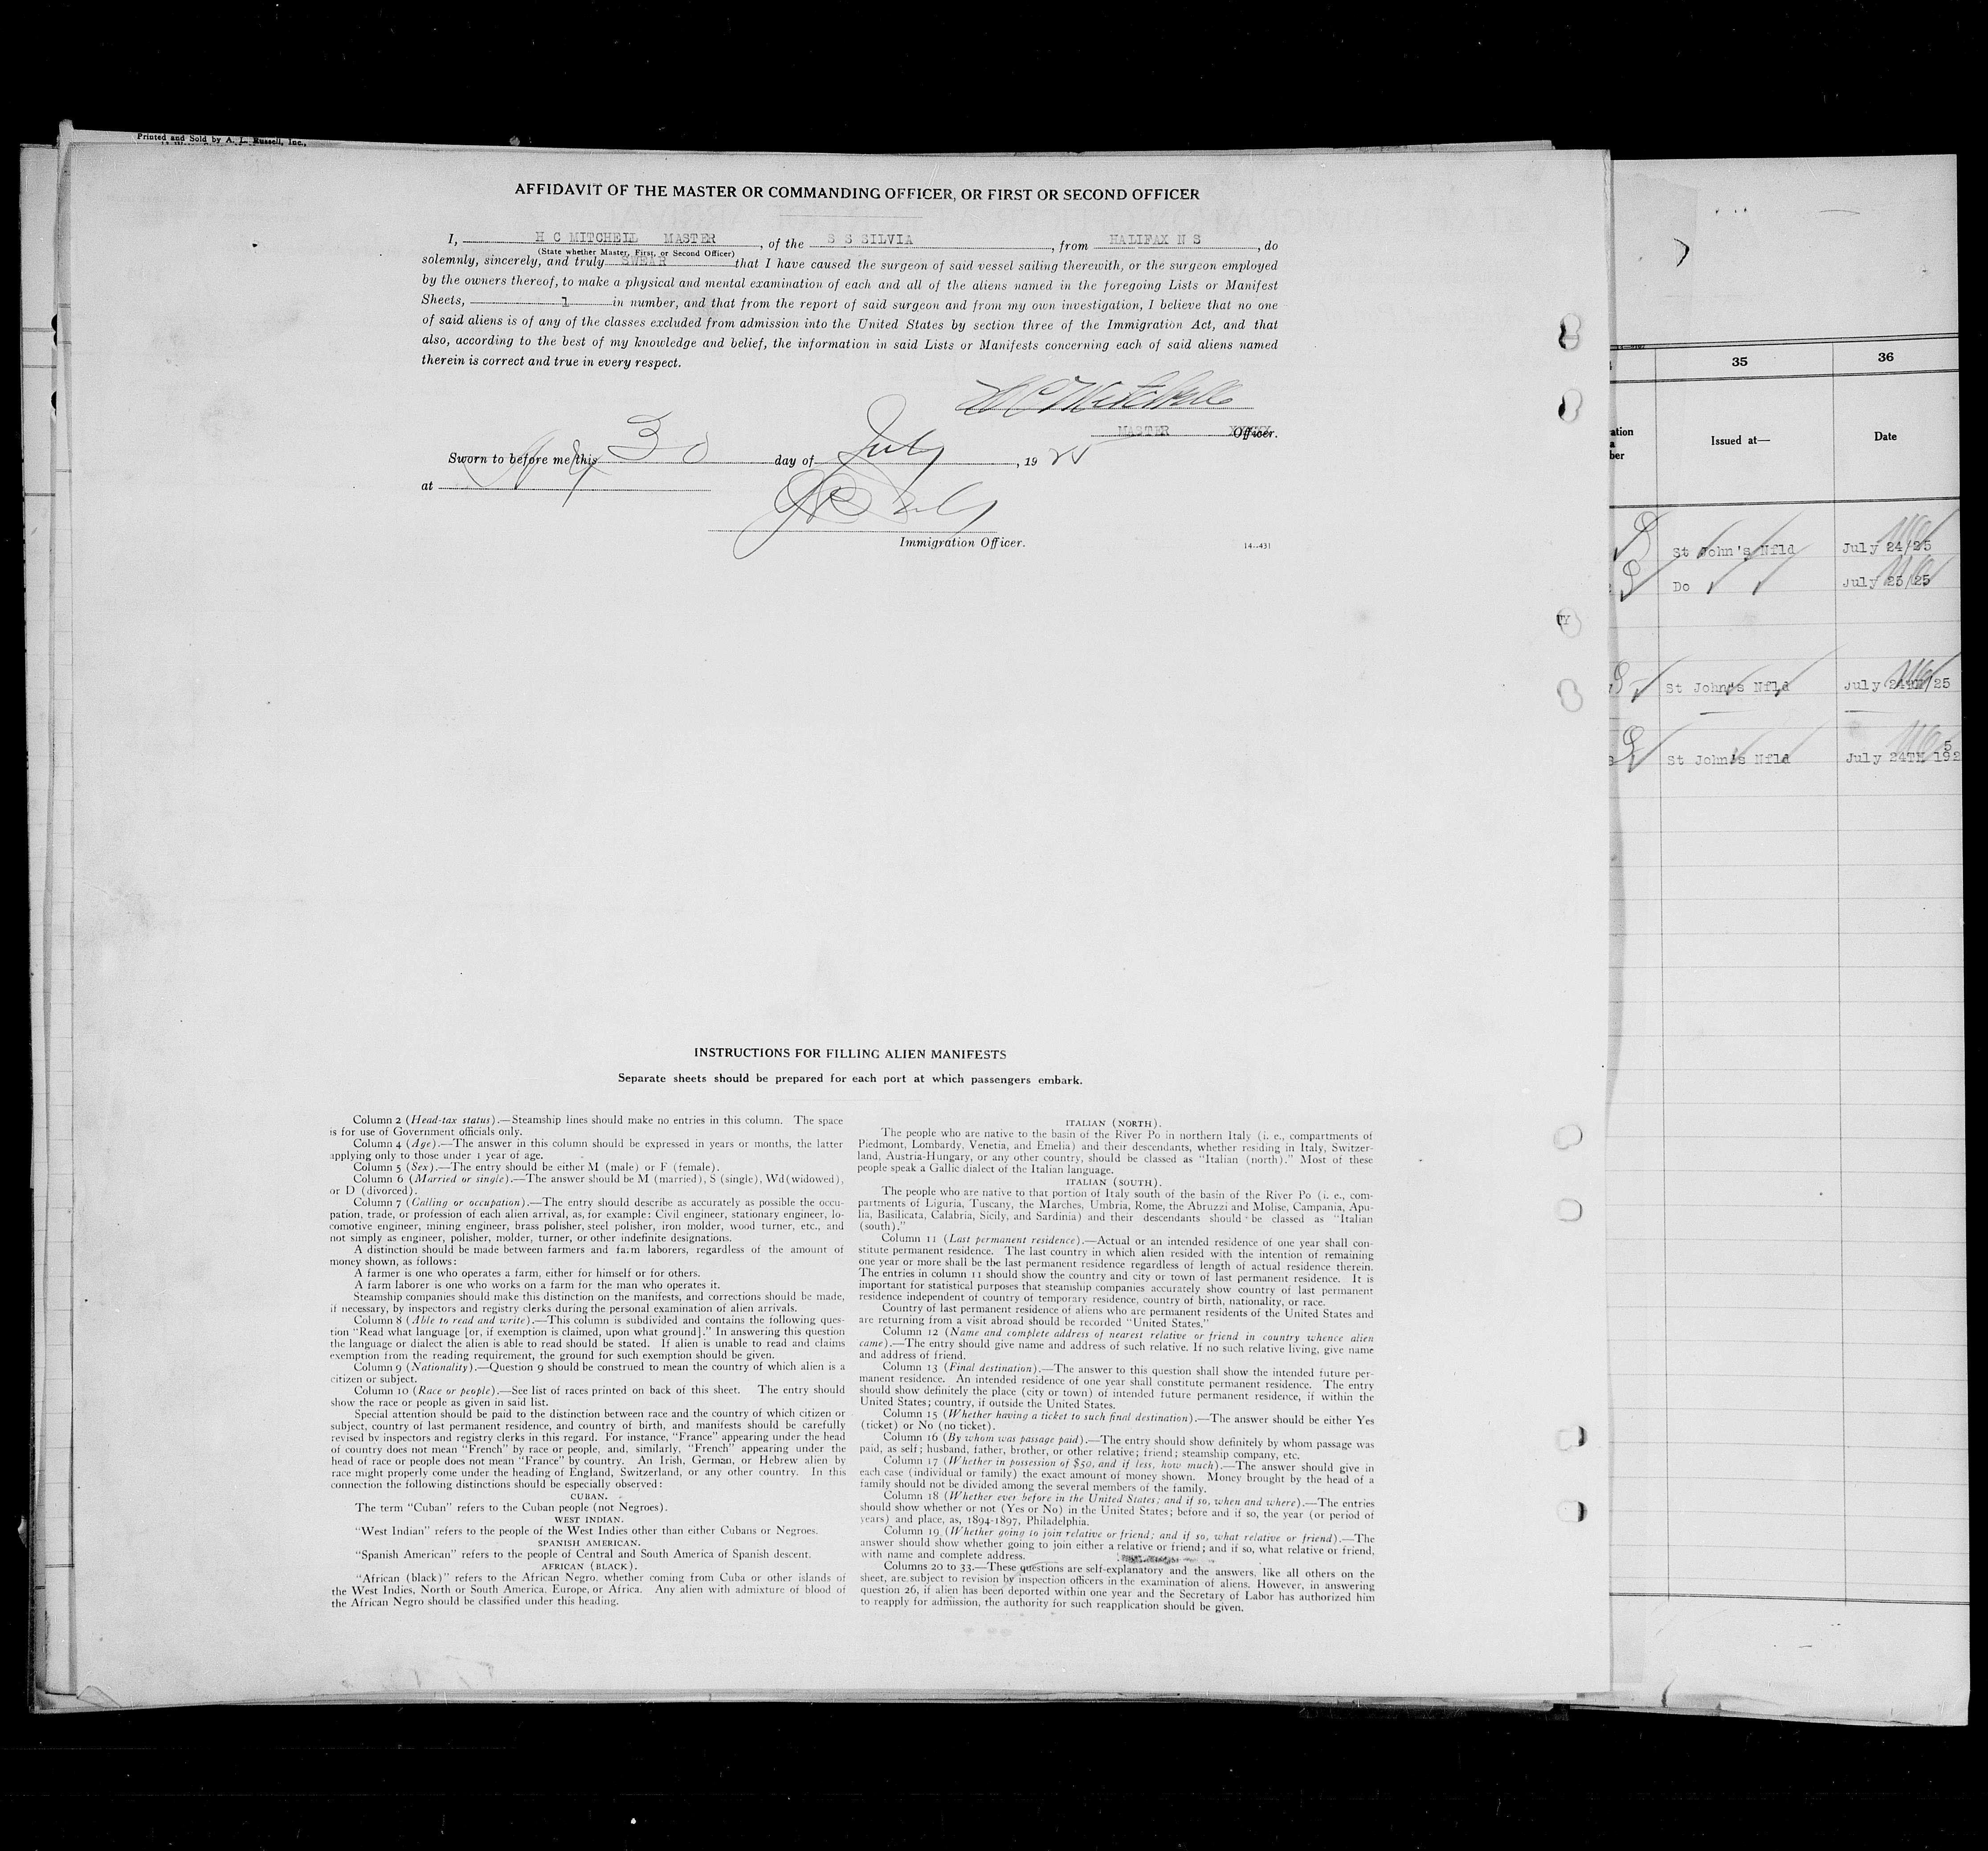 Printed and Sold by A. L. Russell, Inc.,
AFFIDAVIT OF THE MASTER OR COMMANDING OFFICER, OR FIRST OR SECOND OFFICER
I, H C MITCHELL MASTER, of the S S SILVIA, from HALIFAX N S, do
(State whether Master, First, or Second Officer)
solemnly, sincerely, and truly SWEAR that I have caused the surgeon of said vessel sailing therewith, or the surgeon employed
by the owners thereof, to make a physical and mental examination of each and all of the aliens named in the foregoing Lists or Manifest
Sheets, 1 in number, and that from the report of said surgeon and from my own investigation, I believe that no one
of said aliens is of any of the classes excluded from admission into the United States by section three of the Immigration Act, and that
also, according to the best of my knowledge and belief, the information in said Lists or Manifests concerning each of said aliens named
therein is correct and true in every respect.
H C Mitchell
MASTER XXXXX Officer.
Sworn to before me this 30 day of July, 1925
at N Y
Immigration Officer.
14-431
INSTRUCTIONS FOR FILLING ALIEN MANIFESTS
Separate sheets should be prepared for each port at which passengers embark.
Column 2 (Head-tax status).—Steamship lines should make no entries in this column. The space
is for use of Government officials only.
Column 4 (Age).—The answer in this column should be expressed in years or months, the latter
applying only to those under 1 year of age.
Column 5 (Sex).—The entry should be either M (male) or F (female).
Column 6 (Married or single).—The answer should be M (married), S (single), Wd (widowed),
or D (divorced).
Column 7 (Calling or occupation).—The entry should describe as accurately as possible the occu-
pation, trade, or profession of each alien arrival, as, for example: Civil engineer, stationary engineer, lo-
comotive engineer, mining engineer, brass polisher, steel polisher, iron molder, wood turner, etc., and
not simply as engineer, polisher, molder, turner, or other indefinite designations.
A distinction should be made between farmers and farm laborers, regardless of the amount of
money shown, as follows:
A farmer is one who operates a farm, either for himself or for others.
A farm laborer is one who works on a farm for the man who operates it.
Steamship companies should make this distinction on the manifests, and corrections should be made,
if necessary, by inspectors and registry clerks during the personal examination of alien arrivals.
Column 8 (Able to read and write).—This column is subdivided and contains the following ques-
tion "Read what language [or, if exemption is claimed, upon what ground]." In answering this question
the language or dialect the alien is able to read should be stated. If alien is unable to read and claims
exemption from the reading requirement, the ground for such exemption should be given.
Column 9 (Nationality).—Question 9 should be construed to mean the country of which alien is a
citizen or subject.
Column 10 (Race or people).—See list of races printed on back of this sheet. The entry should
show the race or people as given in said list.
Special attention should be paid to the distinction between race and the country of which citizen or
subject, country of last permanent residence, and country of birth, and manifests should be carefully
revised by inspectors and registry clerks in this regard. For instance, "France" appearing under the head
of country does not mean "French" by race or people, and, similarly, "French" appearing under the
head of race or people does not mean "France" by country. An Irish, German, or Hebrew alien by
race might properly come under the heading of England, Switzerland, or any other country. In this
connection the following distinctions should be especially observed:
CUBAN.
The term "Cuban" refers to the Cuban people (not Negroes).
WEST INDIAN.
"West Indian" refers to the people of the West Indies other than either Cubans or Negroes.
SPANISH AMERICAN.
"Spanish American" refers to the people of Central and South America of Spanish descent.
AFRICAN (BLACK).
"African (black)" refers to the African Negro, whether coming from Cuba or other islands of
the West Indies, North or South America, Europe, or Africa. Any alien with admixture of blood of
the African Negro should be classified under this heading.
ITALIAN (NORTH).
The people who are native to the basin of the River Po in northern Italy (i. e., compartments of
Piedmont, Lombardy, Venetia, and Emelia) and their descendants, whether residing in Italy, Switzer-
land, Austria-Hungary, or any other country, should be classed as "Italian (north)." Most of these
people speak a Gallic dialect of the Italian language.
ITALIAN (SOUTH).
The people who are native to that portion of Italy south of the basin of the River Po (i. e., com-
partments of Liguria, Tuscany, the Marches, Umbria, Rome, the Abruzzi and Molise, Campania, Apu-
lia, Basilicata, Calabria, Sicily, and Sardinia) and their descendants should be classed as "Italian
(south)."
Column 11 (Last permanent residence).—Actual or an intended residence of one year shall con-
stitute permanent residence. The last country in which alien resided with the intention of remaining
one year or more shall be the last permanent residence regardless of length of actual residence therein.
The entries in column 11 should show the country and city or town of last permanent residence. It is
important for statistical purposes that steamship companies accurately show country of last permanent
residence independent of country of temporary residence, country of birth, nationality, or race.
Country of last permanent residence of aliens who are permanent residents of the United States and
are returning from a visit abroad should be recorded "United States."
Column 12 (Name and complete address of nearest relative or friend in country whence alien
came).—The entry should give name and address of such relative. If no such relative living, give name
and address of friend.
Column 13 (Final destination).—The answer to this question shall show the intended future per-
manent residence. An intended residence of one year shall constitute permanent residence. The entry
should show definitely the place (city or town) of intended future permanent residence, if within the
United States; country, if outside the United States.
Column 15 (Whether having a ticket to such final destination).—The answer should be either Yes
(ticket) or No (no ticket).
Column 16 (By whom was passage paid).—The entry should show definitely by whom passage was
paid, as self; husband, father, brother, or other relative; friend; steamship company, etc.
Column 17 (Whether in possession of $50, and if less, how much).—The answer should give in
each case (individual or family) the exact amount of money shown. Money brought by the head of a
family should not be divided among the several members of the family.
Column 18 (Whether ever before in the United States; and if so, when and where).—The entries
should show whether or not (Yes or No) in the United States; before and if so, the year (or period of
years) and place, as, 1894-1897, Philadelphia.
Column 19 (Whether going to join relative or friend; and if so, what relative or friend).—The
answer should show whether going to join either a relative or friend; and if so, what relative or friend,
with name and complete address.
Columns 20 to 33.—These questions are self-explanatory and the answers, like all others on the
sheet, are subject to revision by inspection officers in the examination of aliens. However, in answering
question 26, if alien has been deported within one year and the Secretary of Labor has authorized him
to reapply for admission, the authority for such reapplication should be given.
35 36
Issued at— Date
St John's Nfld July 24/25
Do July 25/25
St John's Nfld July 24TH/25
St John's Nfld July 24TH 1925